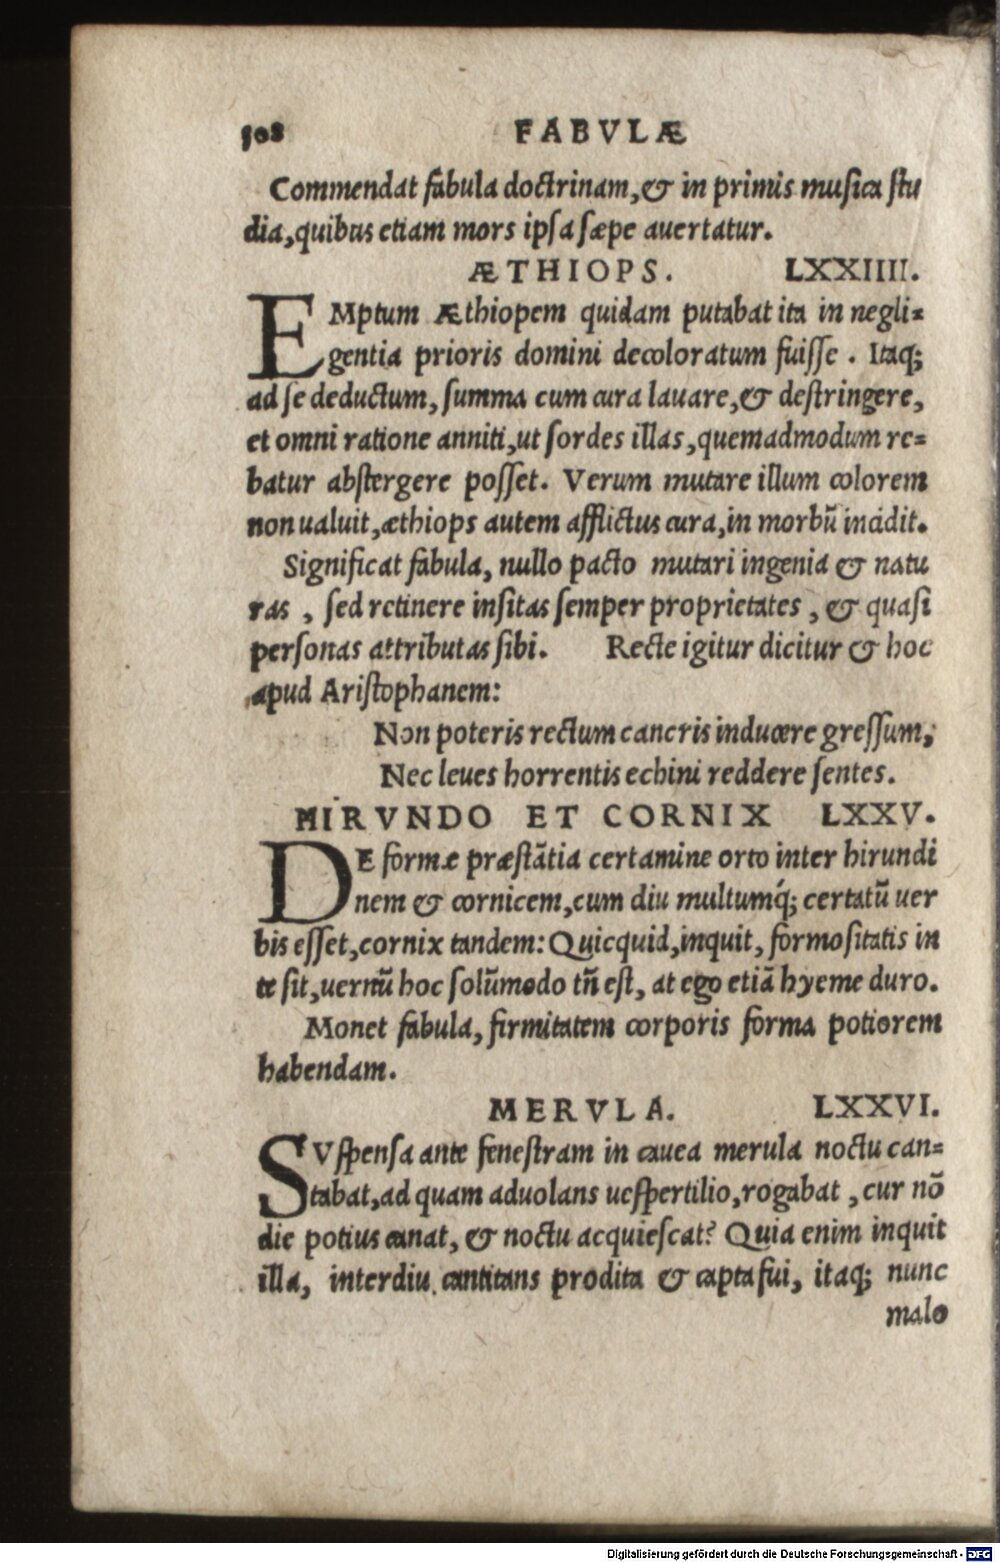 508 FABVLÆ
Commendat fabula doctrinam, & in primis musica stu
dia, quibus etiam mors ipsa sæpe auertatur.
ÆTHIOPS. LXXIIII.
EMptum Æthiopem quidam putabat ita in negli=
gentia prioris domini decoloratum fuisse. Itaq;
ad se deductum, summa cum cura lauare, & destringere,
et omni ratione anniti, ut sordes illas, quemadmodum re=
batur abstergere posset. Verum mutare illum colorem
non ualuit, æthiops autem afflictus cura, in morbũ incidit.
Significat fabula, nullo pacto mutari ingenia & natu
ras, sed retinere insitas semper proprietates, & quasi
personas attributas sibi. Recte igitur dicitur & hoc
apud Aristophanem:
Non poteris rectum cancris inducere gressum,
Nec leues horrentis echini reddere sentes.
HIRVNDO ET CORNIX LXXV.
DE formæ præstãtia certamine orto inter hirundi
nem & cornicem, cum diu multumq́; certatũ uer
bis esset, cornix tandem: Quicquid, inquit, formositatis in
te sit, uernũ hoc solũmodo tñ est, at ego etiã hyeme duro.
Monet fabula, firmitatem corporis forma potiorem
habendam.
MERVLA. LXXVI.
SVspensa ante fenestram in cauea merula noctu can=
tabat, ad quam aduolans uespertilio, rogabat, cur nõ
die potius canat, & noctu acquiescat? Quia enim inquit
illa, interdiu cantitans prodita & capta fui, itaq; nunc
malo
Digitalisierung gefördert durch die Deutsche Forschungsgemeinschaft - DFG